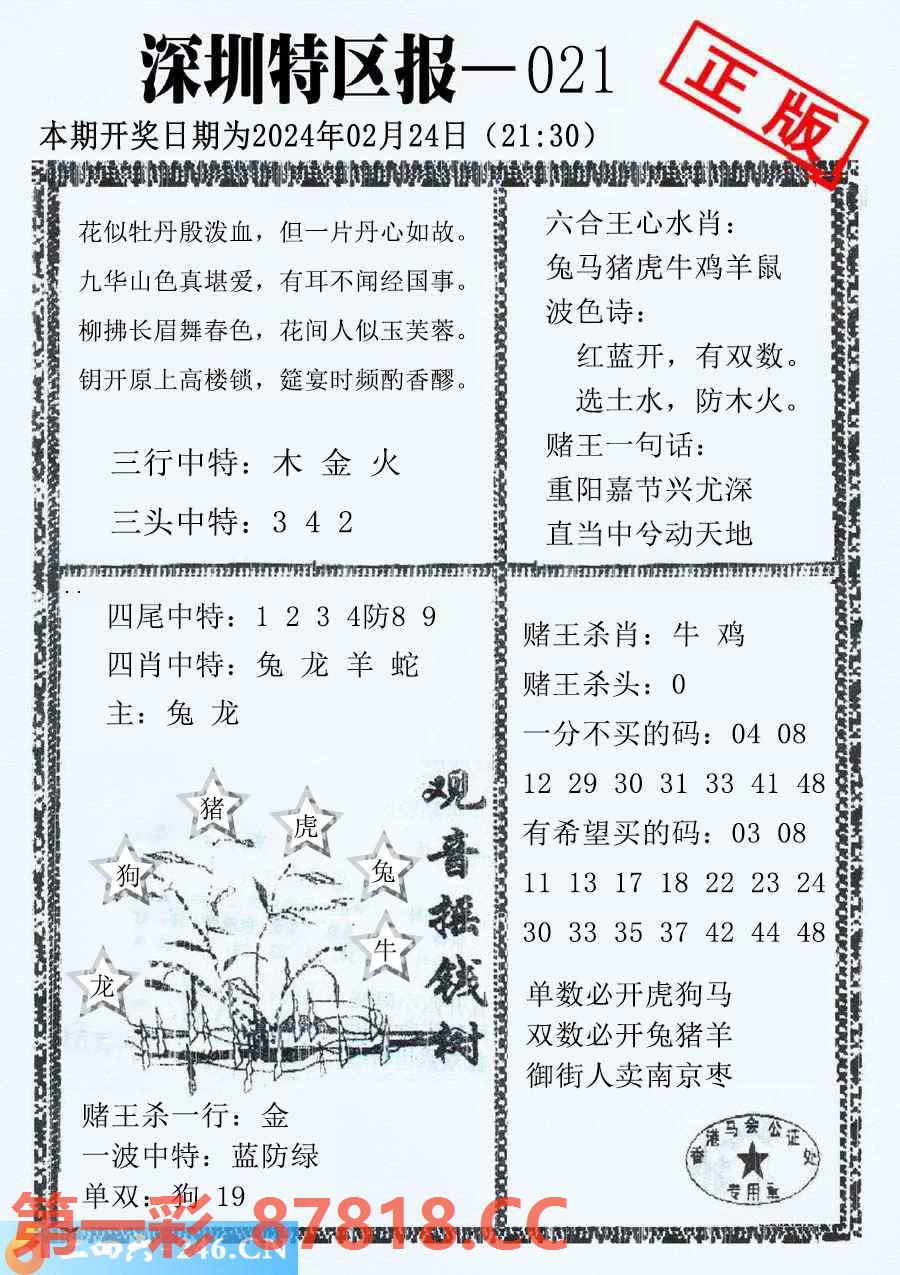 深圳特区报—021
正版
本期开奖日期为2024年02月24日（21:30）
花似牡丹殷泼血，但一片丹心如故。
九华山色真堪爱，有耳不闻经国事。
柳拂长眉舞春色，花间人似玉芙蓉。
钥开原上高楼锁，筵宴时频酌香醪。
三行中特：木 金 火
三头中特：3 4 2
六合王心水肖：
兔马猪虎牛鸡羊鼠
波色诗：
红蓝开，有双数。
选土水，防木火。
赌王一句话：
重阳嘉节兴尤深
直当中兮动天地
四尾中特：1 2 3 4防8 9
四肖中特：兔 龙 羊 蛇
主：兔 龙
猪
虎
狗
兔
牛
龙
观音摇钱树
赌王杀一行：金
一波中特：蓝防绿
单双：狗 19
赌王杀肖：牛 鸡
赌王杀头：0
一分不买的码：04 08
12 29 30 31 33 41 48
有希望买的码：03 08
11 13 17 18 22 23 24
30 33 35 37 42 44 48
单数必开虎狗马
双数必开兔猪羊
御街人卖南京枣
香港马会公证处
专用章
第一彩 87818.CC
246.CN